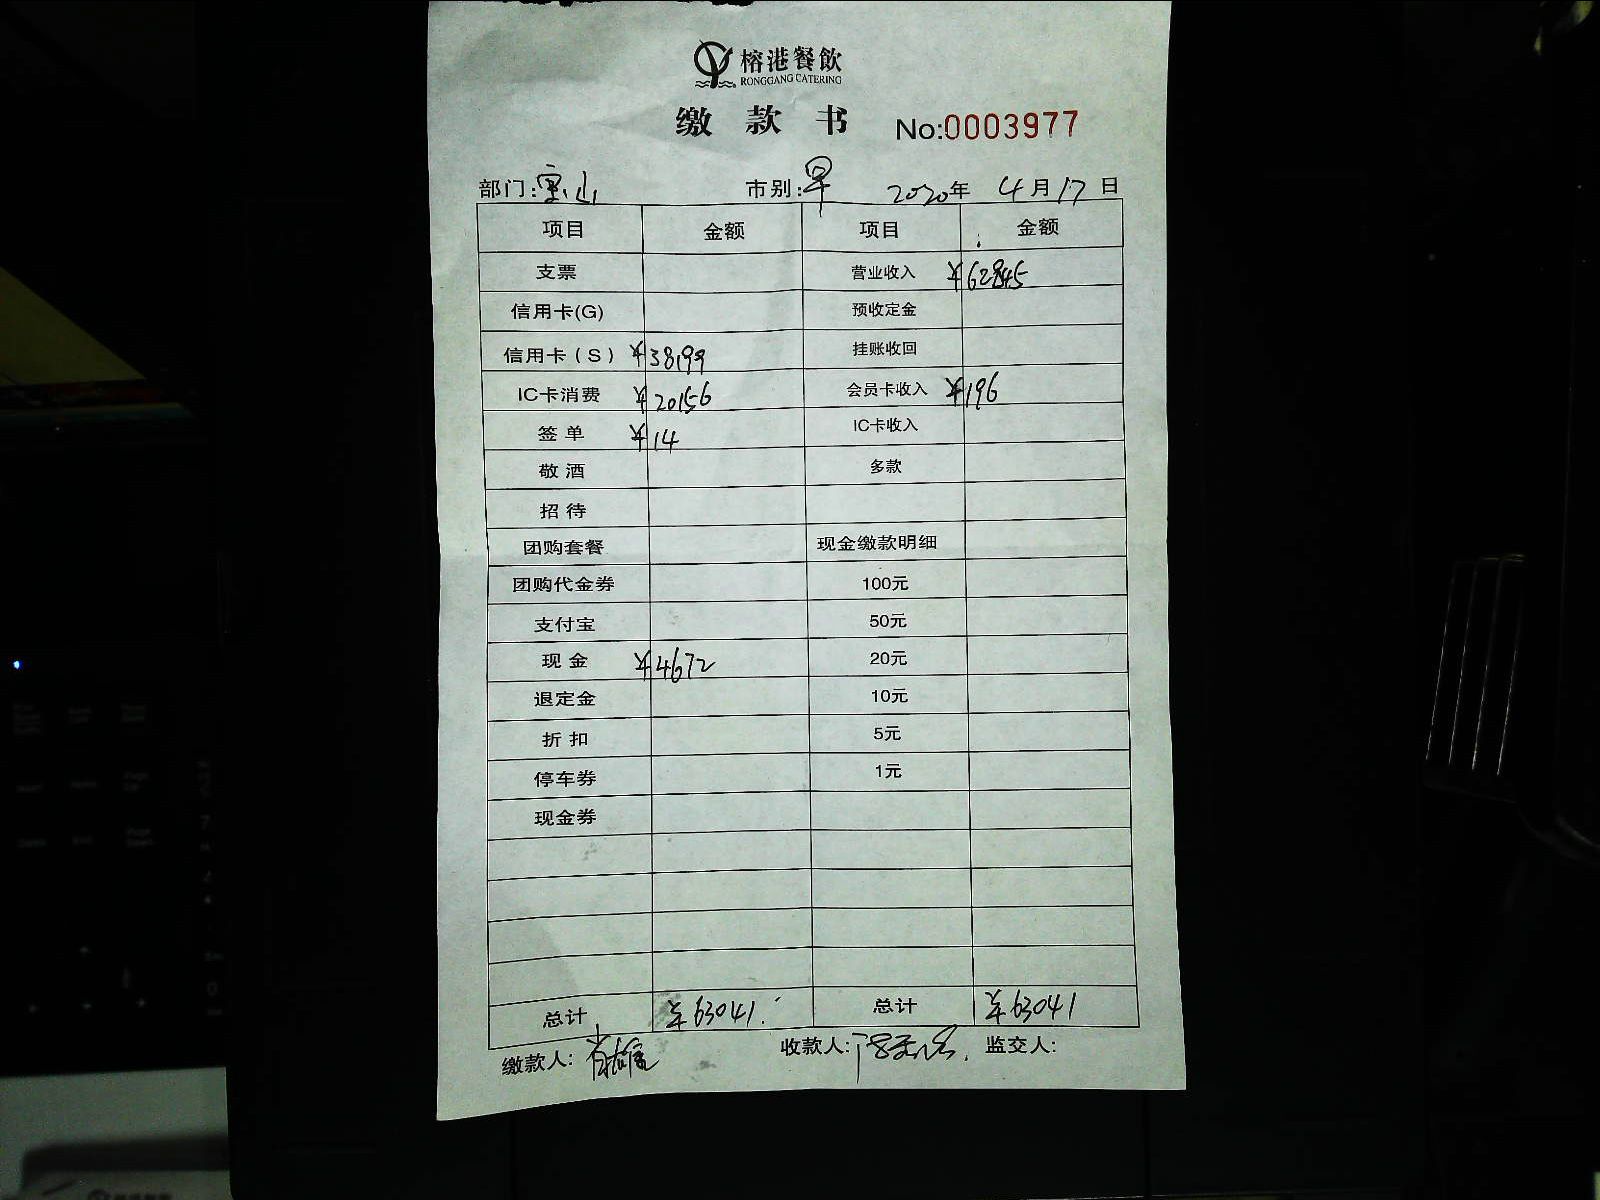 榕港餐飲
RONGGANG CATERING
缴 款 书 No:0003977
部门:宝山 市别:早 2020年 4月17日
项目 金额 项目 金额
支票 营业收入 ¥62845
信用卡(G) 预收定金
信用卡(S) ¥38199 挂账收回
IC卡消费 ¥20156 会员卡收入 ¥196
签单 ¥14 IC卡收入
敬酒 多款
招待
团购套餐 现金缴款明细
团购代金券 100元
支付宝 50元
现金 ¥4672 20元
退定金 10元
折扣 5元
停车券 1元
现金券
总计 ¥63041. 总计 ¥63041
缴款人: 收款人: 监交人: